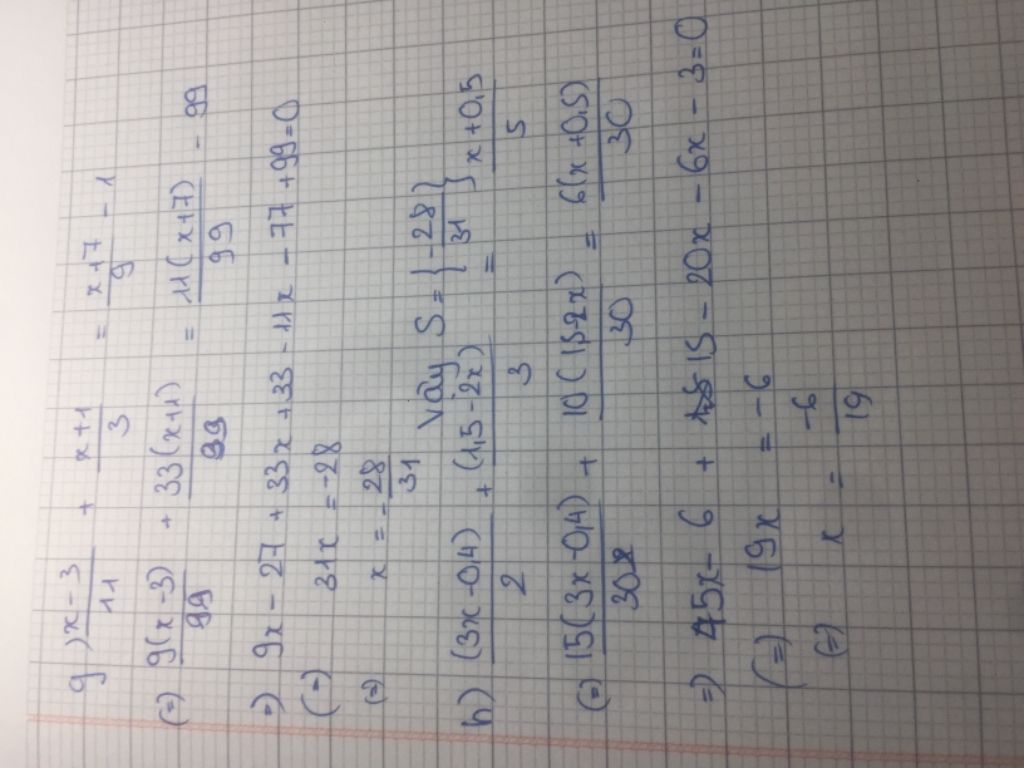 g) (x-3)/11 + (x+1)/3 = (x+7)/9 - 1
(=) 9(x-3)/99 + 33(x+1)/99 = 11(x+7)/99 - 99
=) 9x - 27 + 33x + 33 - 11x - 77 + 99 = 0
(=) 31x = -28
(=) x = -28/31
Vậy S = { -28/31 }
h) (3x-0,4)/2 + (1,5-2x)/3 = (x+0,5)/5
(=) 15(3x-0,4)/30 + 10(1,5-2x)/30 = 6(x+0,5)/30
=) 45x - 6 + 15 - 20x - 6x - 3 = 0
(=) 19x = -6
(=) x = -6/19